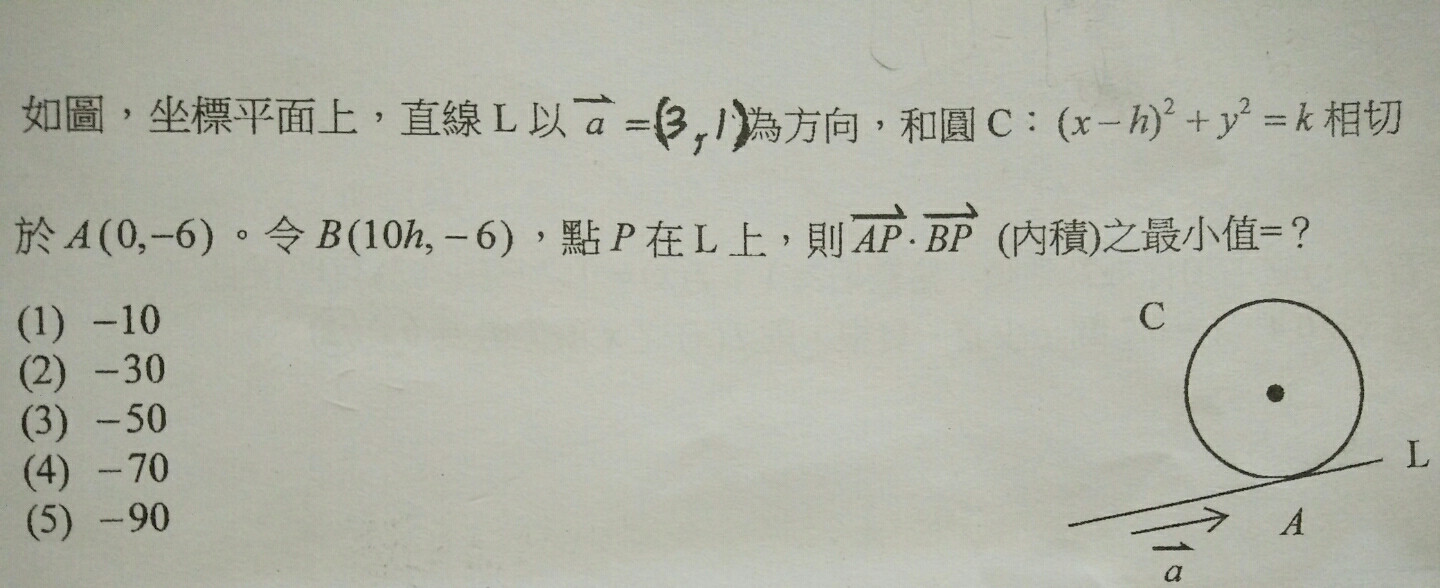 如圖，坐標平面上，直線 L 以 $\overrightarrow{a}$ =(3,1)為方向，和圓 C：$(x-h)^2+y^2=k$ 相切
於 A(0,−6)。令 B(10h,−6)，點 P 在 L 上，則 $\overrightarrow{AP}\cdot\overrightarrow{BP}$ (內積)之最小值=？
(1) −10
(2) −30
(3) −50
(4) −70
(5) −90
C
L
A
$\overrightarrow{a}$